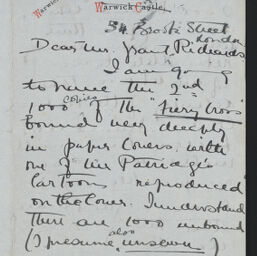 Warwick
Warwick Castle,
Street
London
Dear Mr. Grant Richards
I am going
to the 2nd
1000 copies of the "fiery Cross"
bound very deeply
in paper covers with
one of Patridge's
Cartoons reproduced
on the cover. I understand
there are 1000 unbound
(I presume also unsewn)